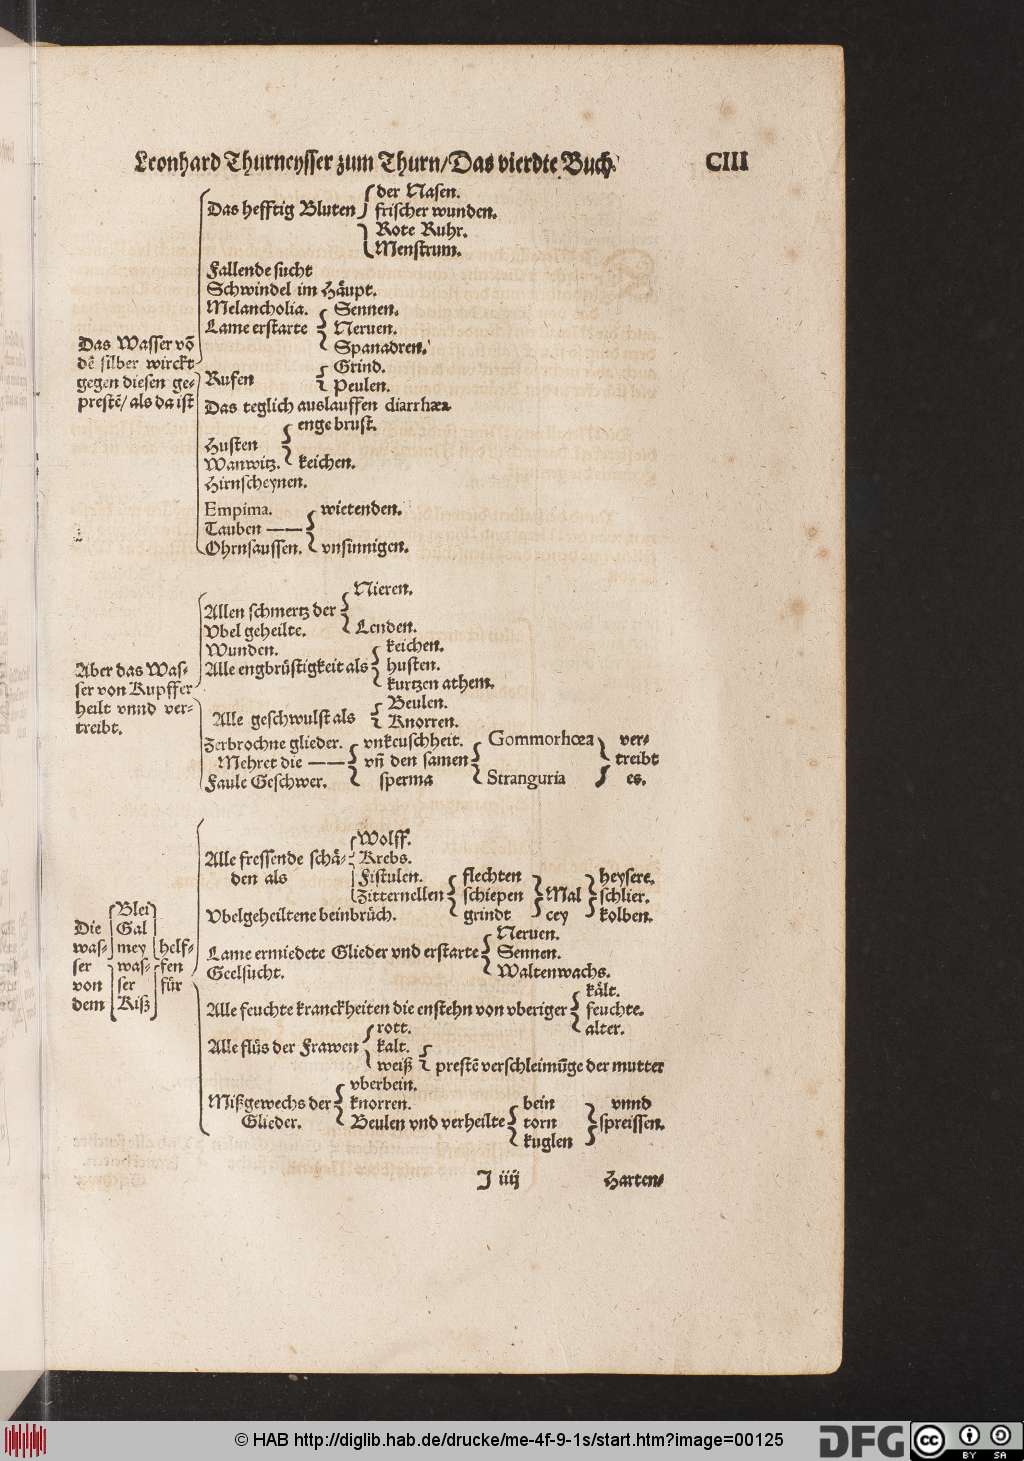 Leonhard Thurneysser zum Thurn/Das vierdte Buch. CIII
der Nasen.
Das hefftig Bluten frischer wunden.
Rote Ruhr.
Menstrum.
Fallende sucht
Schwindel im Häupt.
Melancholia. Sennen.
Lame erstarte Neruen.
Spanadren.
Das Wasser võ
dẽ silber wirckt
gegen diesen ge-
prestẽ/ als da ist
Grind.
Rufen
Peulen.
Das teglich auslauffen diarrhœa
enge brust.
Husten
Wanwitz. keichen.
Hirnscheynen.
Empima. wietenden.
Tauben
Ohrnsaussen. vnsinnigen.
Nieren.
Allen schmertz der
Vbel geheilte. Lenden.
Wunden. keichen.
Alle engbrüstigkeit als husten.
kurtzen athem.
Aber das Was-
ser von Kupffer
heilt vnnd ver-
treibt.
Beulen.
Alle geschwulst als
Knorren.
Zerbrochne glieder. vnkeuschheit. Gommorhœa ver-
Mehret die vñ den samen treibt
Faule Geschwer. sperma Stranguria es.
Wolff.
Alle fressende schä- Krebs.
den als Fistulen. flechten heysere.
Zitternellen schiepen Mal schlier.
Vbelgeheiltene beinbrüch. grindt cey kolben.
Die
was-
ser
von
dem
Blei
Gal
mey
was-
ser
Kiß
helf-
fen
für
Neruen.
Lame ermiedete Glieder vnd erstarte Sennen.
Geelsucht. Waltenwachs.
kält.
Alle feuchte kranckheiten die enstehn von vberiger feuchte.
alter.
rott.
Alle flüs der Frawen kalt.
weiß prestẽ verschleimũge der mutter
vberbein.
Mißgewechs der knorren. bein vnnd
Glieder. Beulen vnd verheilte torn spreissen.
kuglen
J iiij Harten-
© HAB http://diglib.hab.de/drucke/me-4f-9-1s/start.htm?image=00125
DFG
cc
BY SA